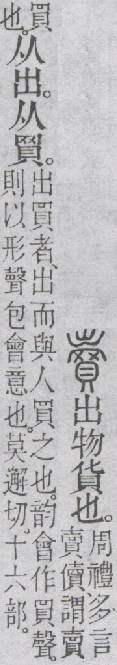 賣出物貨也。
周禮多言
賣儥謂賣
買
也。
从出。从買。
出買者、出而與人買之也。韵會作買聲。
則以形聲包會意也。莫邂切。十六部。